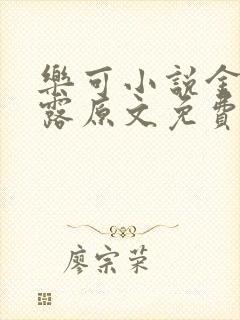 樂可小說金
露原文免費
廖宗荣